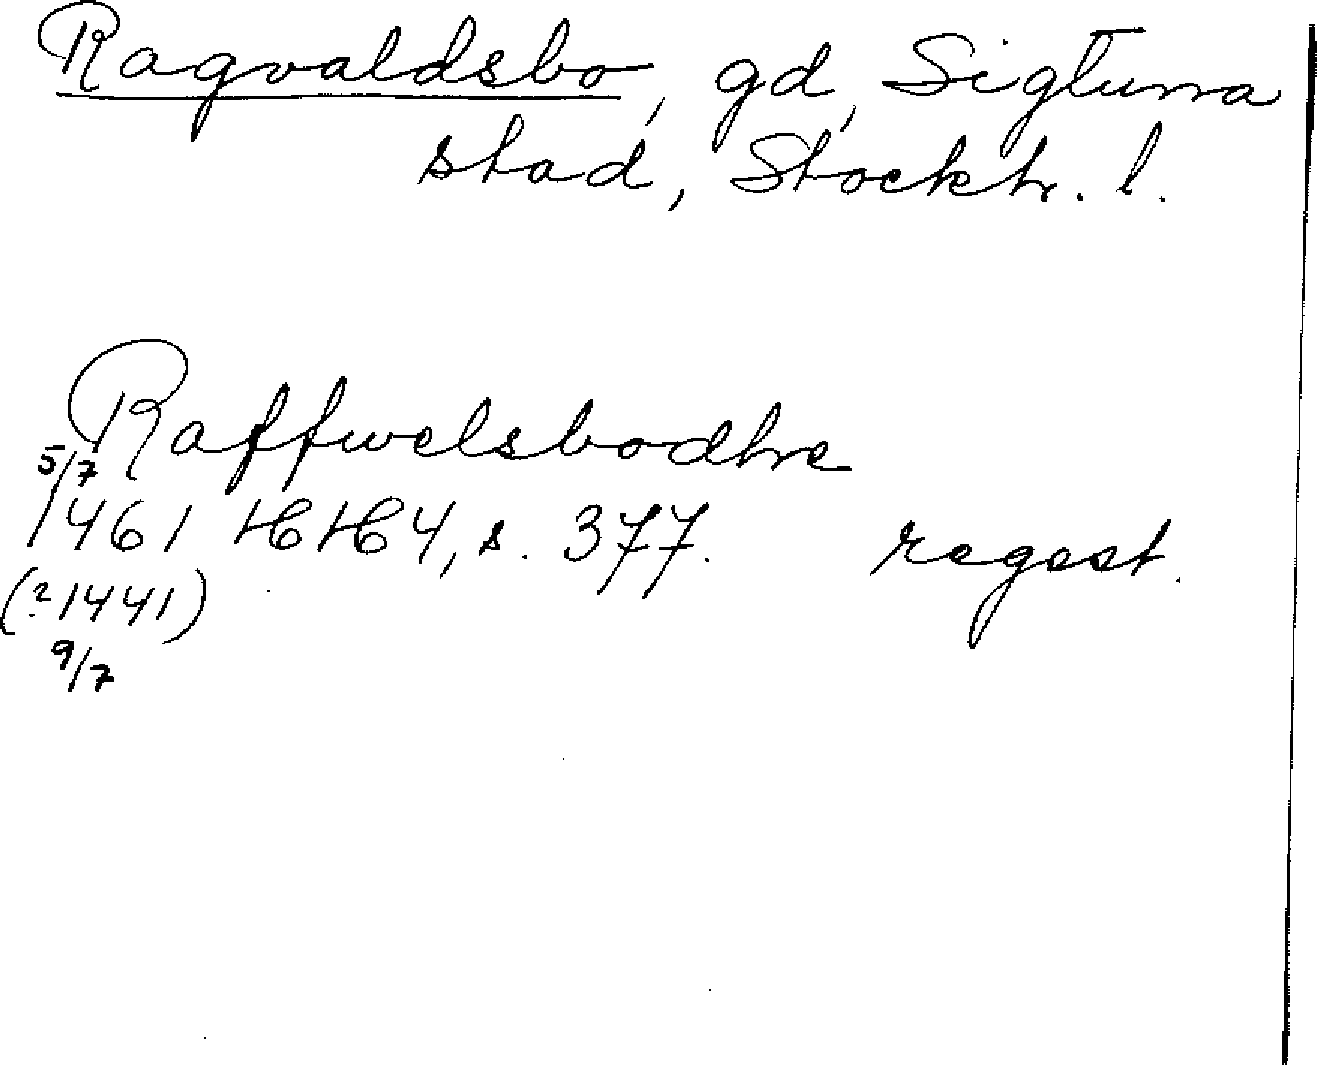 Ragvaldsbo, gd, Sigtuna
stad, Stockh. l.
Raffwelsbodhe
5/7
1461 HH 4, s. 377. regest.
(?1441)
9/7